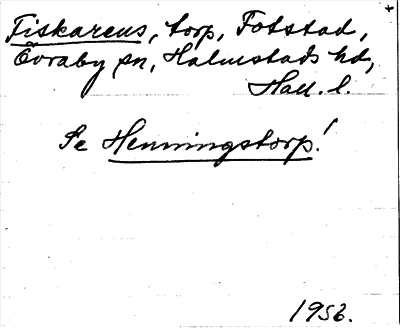 Fiskareus, torp, Fotstad,
Övraby sn, Halmstads hd,
Hall. l.
Se Henningstorp!
1952.